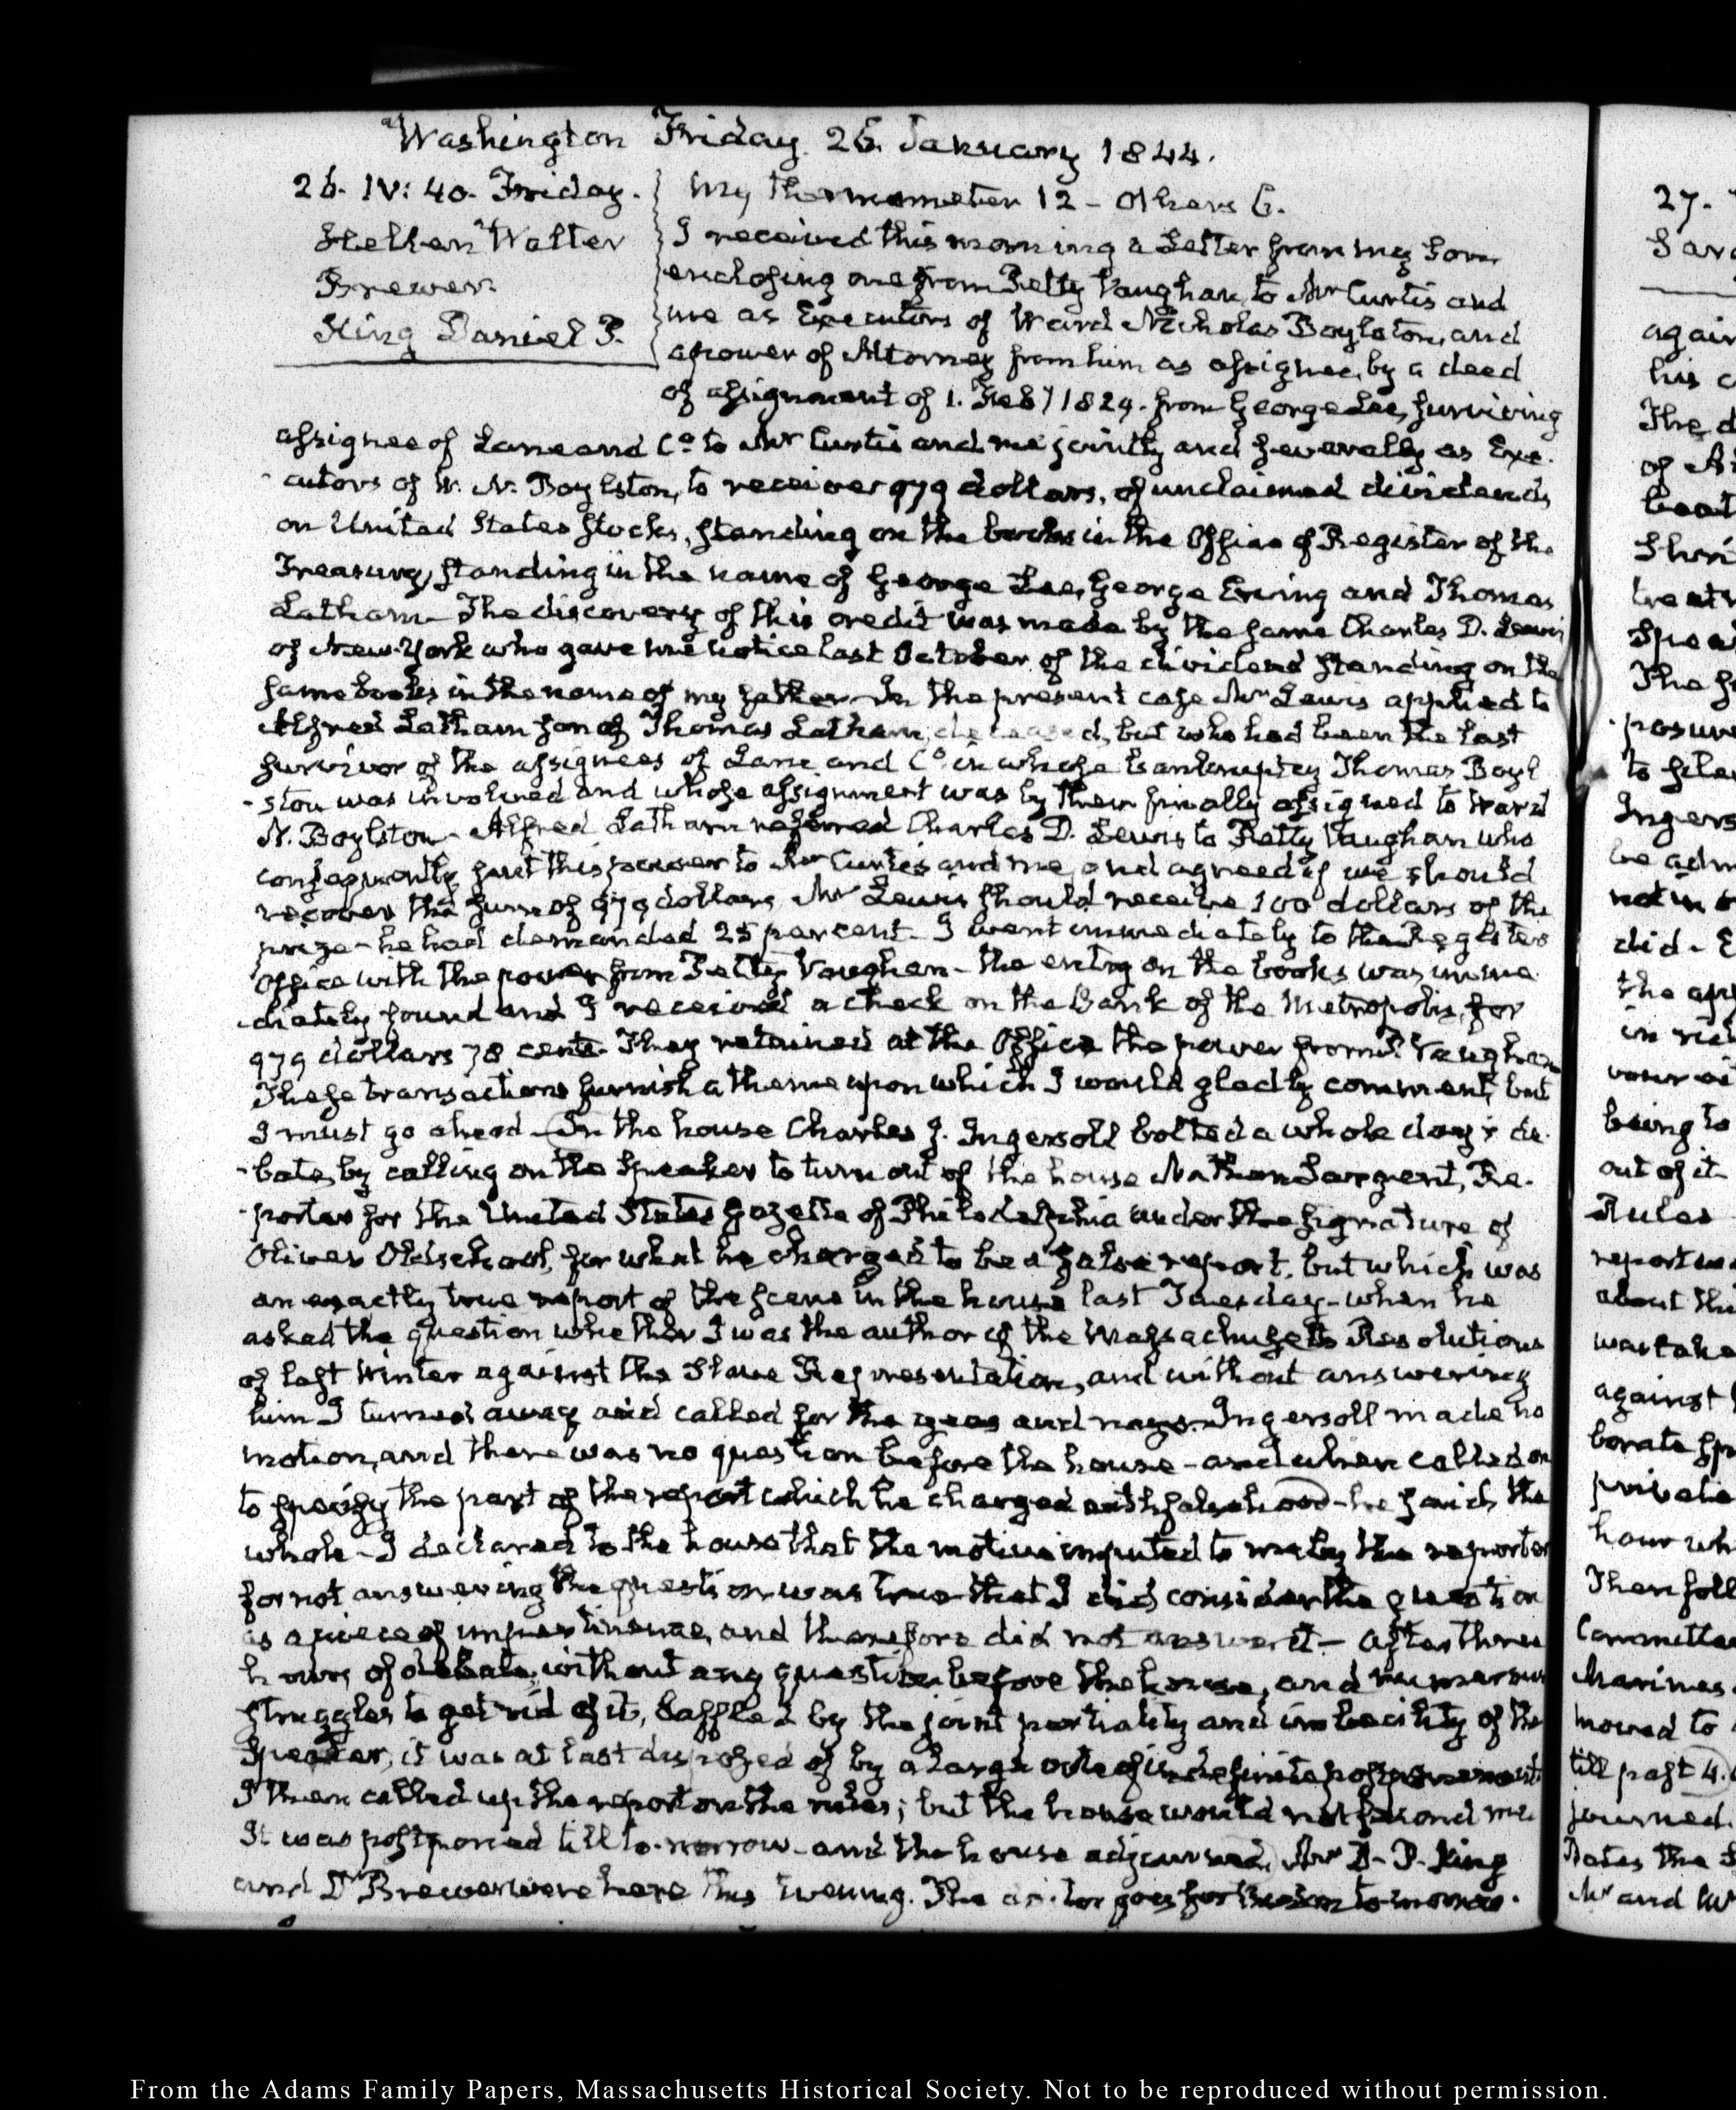 Washington Friday 26. January 1844.
26. IV: 40. Friday.
Hellen Walter
Brewer.
King Daniel P.
My Thermometer 12 - Others 6.
I received this morning a Letter from my Son,
enclosing one from Petty Vaughan, to Mr Curtis and
me as Executors of Ward Nicholas Boylston, and
a power of Attorney from him as assignee, by a deed
of assignment of 1. Feby 1824. from George Lee, surviving
assignee of Lane and Co. to Mr Curtis and me jointly and severally as Exe-
-cutors of W. N. Boylston, to receive 979 dollars, of unclaimed dividends
on United States Stocks, standing on the books in the Office of Register of the
Treasury, standing in the name of George Lee, George Ewing and Thomas
Latham. The discovery of this credit was made by the same Charles D. Lewis
of New-York who gave me notice last October, of the dividend standing on the
same books in the name of my father. In the present case Mr Lewis applied to
Alfred Latham son of Thomas Latham, deceased, but who had been the last
survivor of the assignees of Lane and Co. in whose bankruptcy Thomas Boyl
-ston was involved and whose assignment was by them finally assigned to Ward
N. Boylston - Alfred Latham referred Charles D. Lewis to Petty Vaughan who
consequently sent this power to Mr Curtis and me, and agreed if we should
recover the sum of 979 dollars, Mr Lewis should receive 100 dollars of the
prize - he had demanded 25 per cent. I went immediately to the Register's
Office with the power from Petty Vaughan - the entry on the books was imme-
-diately found and I received a check on the Bank of the Metropolis, for
979 dollars 78 cents. They retained at the Office the power from P. Vaughan
These transactions furnish a theme upon which I would gladly comment, but
I must go ahead - In the house Charles J. Ingersoll bolted a whole day's de-
-bate, by calling on the Speaker to turn out of the house Nathan Sargent, Re-
-porter for the United States Gazette of Philadelphia under the signature of
Oliver Oldschool, for what he charged to be a false report, but which was
an exactly true report of the scene in the house last Tuesday - when he
asked the question whether I was the author of the Massachusetts Resolutions
of last Winter against the Slave Representation, and without answering
him I turned away and called for the yeas and nays. Ingersoll made no
motion, and there was no question before the house - and when called on
to specify the part of the report which he charged with falsehood - he said, the
whole - I declared to the house that the motive imputed to me by the reporter
for not answering the question was true - that I did consider the question
as a piece of impertinence, and therefore did not answer it - after three
hours of debate, without any question before the house, and numerous
struggles to get rid of it, baffled by the joint partiality and imbecility of the
Speaker, it was at last disposed of by a large vote of indefinite postponement
I then called up the report on the rules; but the house would not second me
It was postponed till to-morrow - and the house adjourned. Mr D. P. King
and Dr Brewer were here this Evening. The goes for Boston to-morrow.
27.
again
his c
The d
did - E
being to
out of it
Rules
about the
against
private
Then foll
Committee
moved to
till past 4.
journed.
Mr and Mr
From the Adams Family Papers, Massachusetts Historical Society. Not to be reproduced without permission.